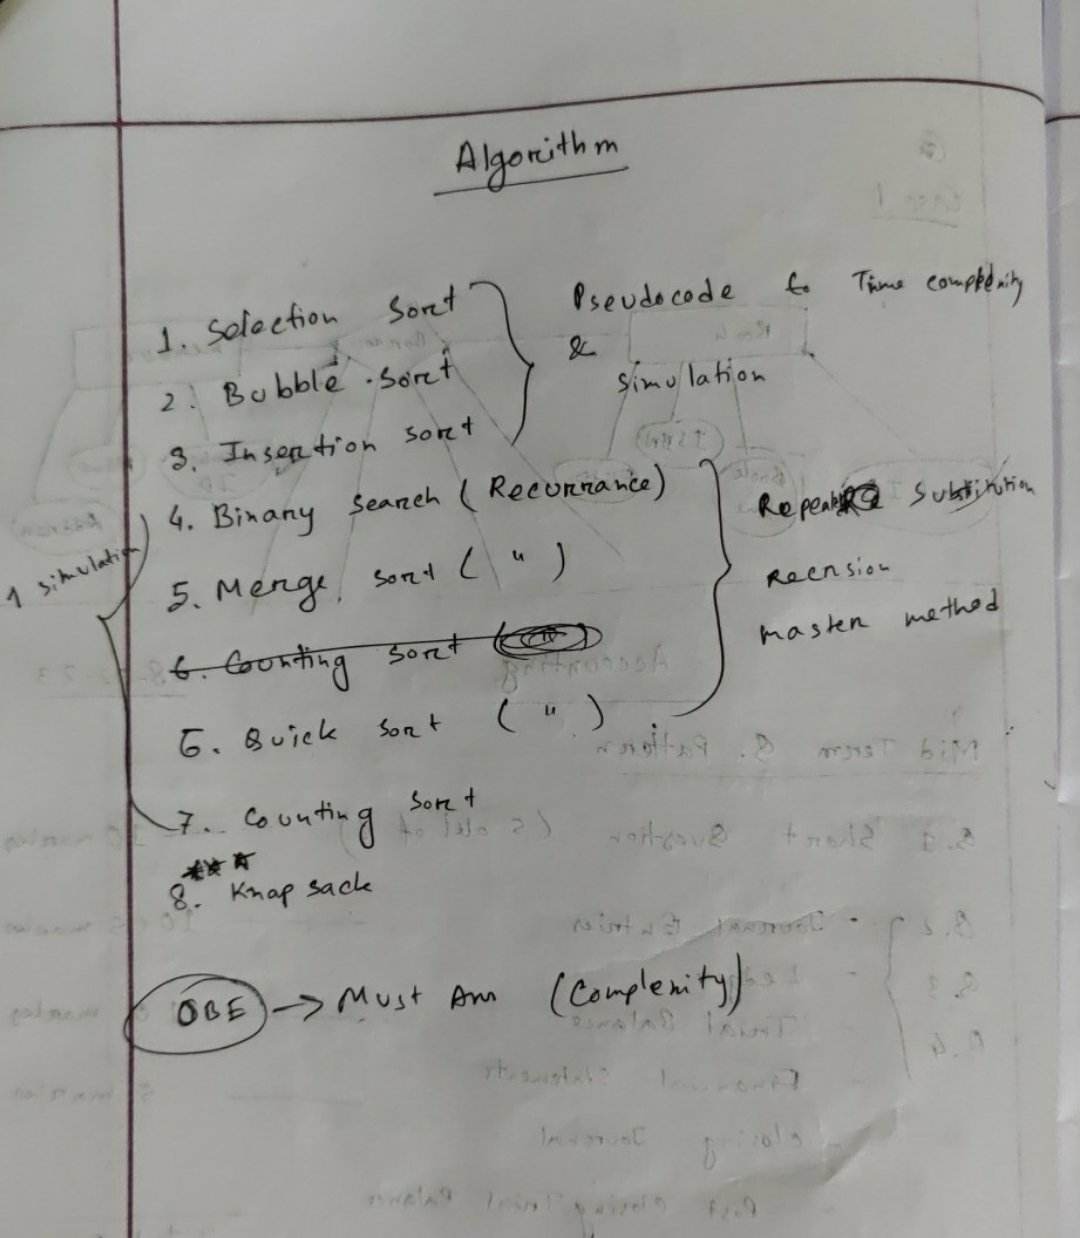 Algorithm
1. Selection Sort
2. Bubble sort
3. Insertion sort
Pseudocode to Time complexity
&
simulation
4. Binary search (Recurrance)
5. Merge sort ( " )
6. Counting sort
6. Quick sort ( " )
Substitution
Recrsion
master method
1 simulation
7. Counting sort
***
8. Knap sack
OBE → Must Ans (Complexity)